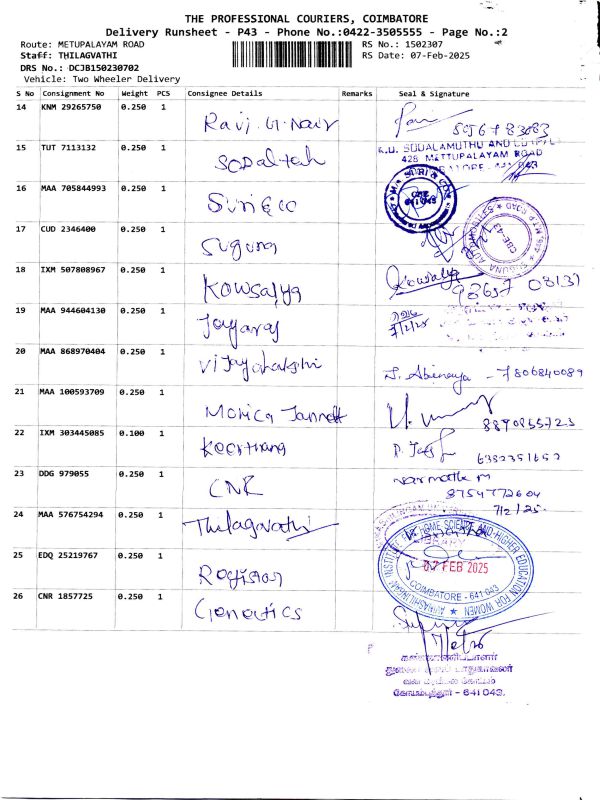 THE PROFESSIONAL COURIERS, COIMBATORE
Delivery Runsheet - P43 - Phone No.:0422-3505555 - Page No.:2
Route: METUPALAYAM ROAD
RS No.: 1502307
Staff: THILAGVATHI
RS Date: 07-Feb-2025
DRS No.: DCJB150230702
Vehicle: Two Wheeler Delivery
S No Consignment No Weight PCS Consignee Details Remarks Seal & Signature
14 KNM 29265750 0.250 1 Ravi.G.Nair
15 TUT 7113132 0.250 1
428 METTUPALAYAM ROAD
16 MAA 705844993 0.250 1
17 CUD 2346400 0.250 1 Suguna
18 IXM 507808967 0.250 1 Kowsalya Kowsalya
98657 08131
19 MAA 944604130 0.250 1 Jayaraj
7/2/25
20 MAA 868970404 0.250 1 J. Abinaya - 7806840089
21 MAA 100593709 0.250 1 Monica
8890855723
22 IXM 303445085 0.100 1
6382351652
23 DDG 979055 0.250 1 CNR
8754772604
7/2/25.
24 MAA 576754294 0.250 1 Thilagavathi
HOME SCIENCE AND HIGHER EDUCATION FOR WOMEN
07 FEB 2025
COIMBATORE - 641 043
25 EDQ 25219767 0.250 1
26 CNR 1857725 0.250 1 Genetics
கோயம்புத்தூர் - 641 043.